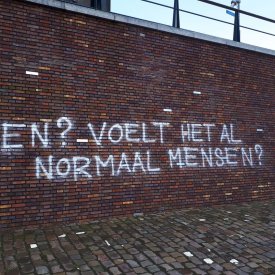 EN? VOELT HET AL
NORMAAL MENSEN?